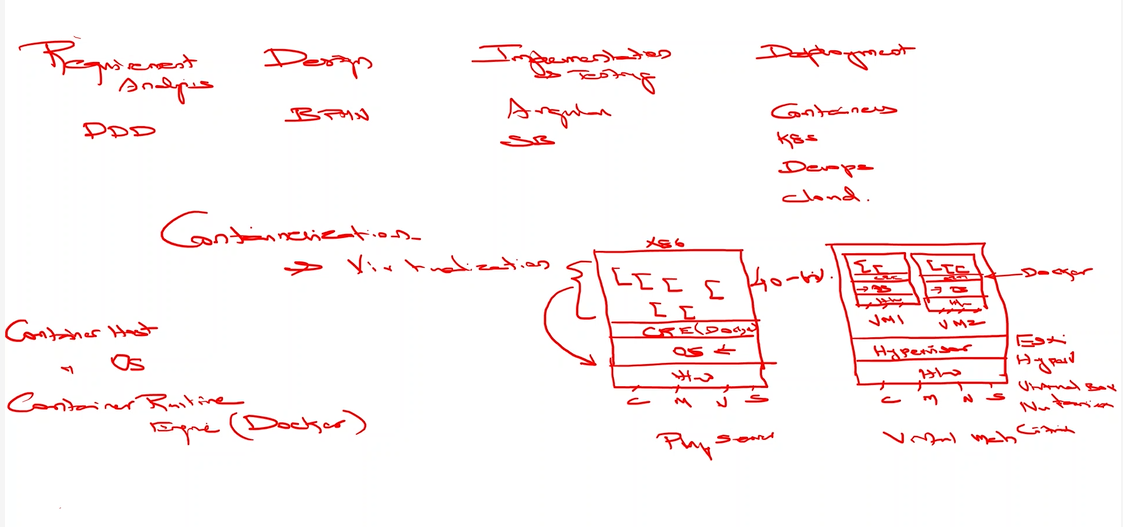 Requirement
Analysis
DDD
Design
BPMN
Implementation
Testing
Angular
SB
Deployment
Containers
K8s
Devops
Cloud.
Containerization
→ Virtualization
Container Host
OS
Container Runtime
Engine (Docker)
X86
CRE (Docker
OS ←
H/w
C M N S
Phy Server
VM1
VM2
Docker
Hypervisor
H/w
C M N S
Esxi
Hyper V
Virtual Box
Nutanix
Citrix